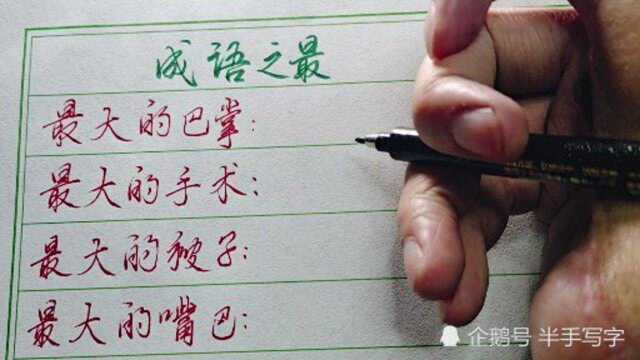 成语之最
最大的巴掌:
最大的手术:
最大的被子:
最大的嘴巴:
企鹅号 半手写字